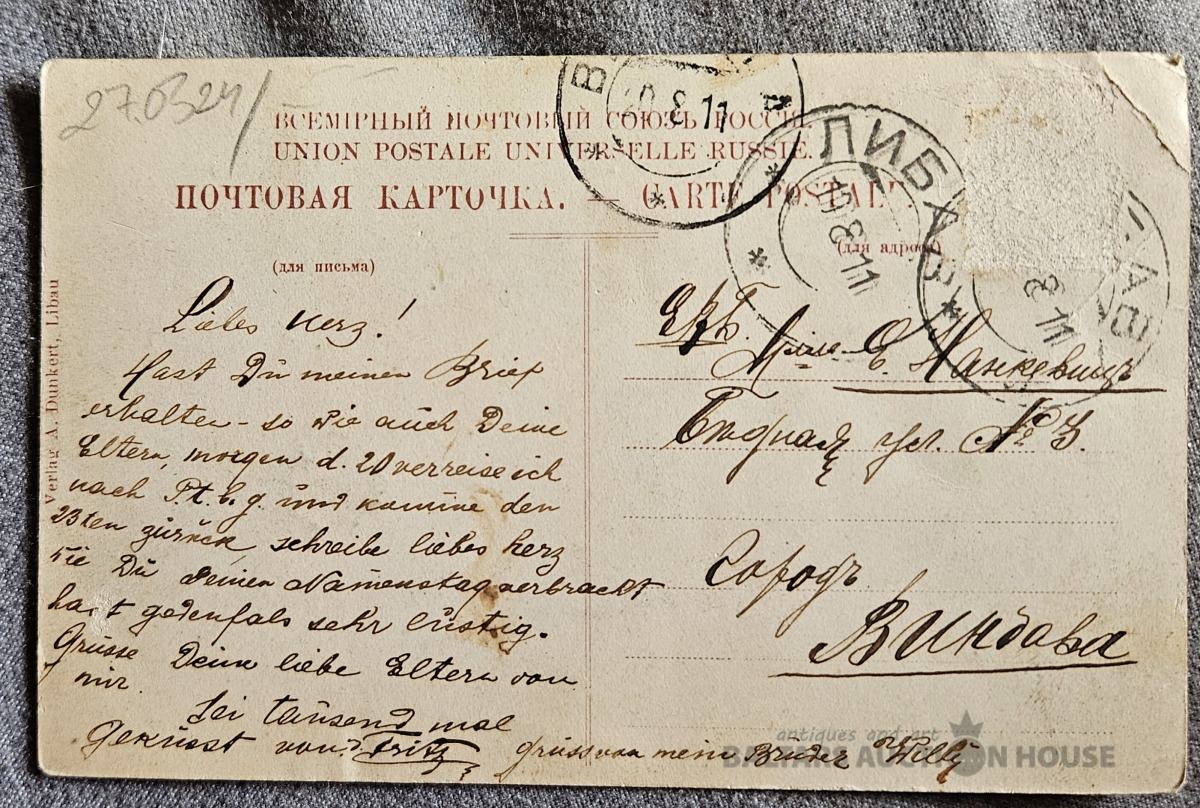 27.0324/
ВСЕМІРНЫЙ ПОЧТОВЫЙ СОЮЗЪ РОССІЯ.
UNION POSTALE UNIVERSELLE RUSSIE.
ПОЧТОВАЯ КАРТОЧКА. — CARTE POSTALE
20 8 11
ЛИБАВА
19 8 11
8 11
(для письма)
(для адреса)
Verlag A. Dunkert, Libau
Liebes Herz!
Hast Du meinen Brief
erhalten – so wie auch Deine
Eltern, morgen d. 20 verreise ich
nach P.t.b.g. und komme den
23ten zürück, schreibe liebes herz
wie Du Deinen Namenstag verbracht
hast gedenfals sehr lüstig.
Grüsse Deine liebe Eltern von
mir.
Sei taüsend mal
Geküsst von Fritz
Grüss von mein Brüder Willy
ЕВБ.
М-лле Е. Нанкевицъ
ул. № 3.
Городъ
Виндава
antiques and art
BALTARS AUCTION HOUSE